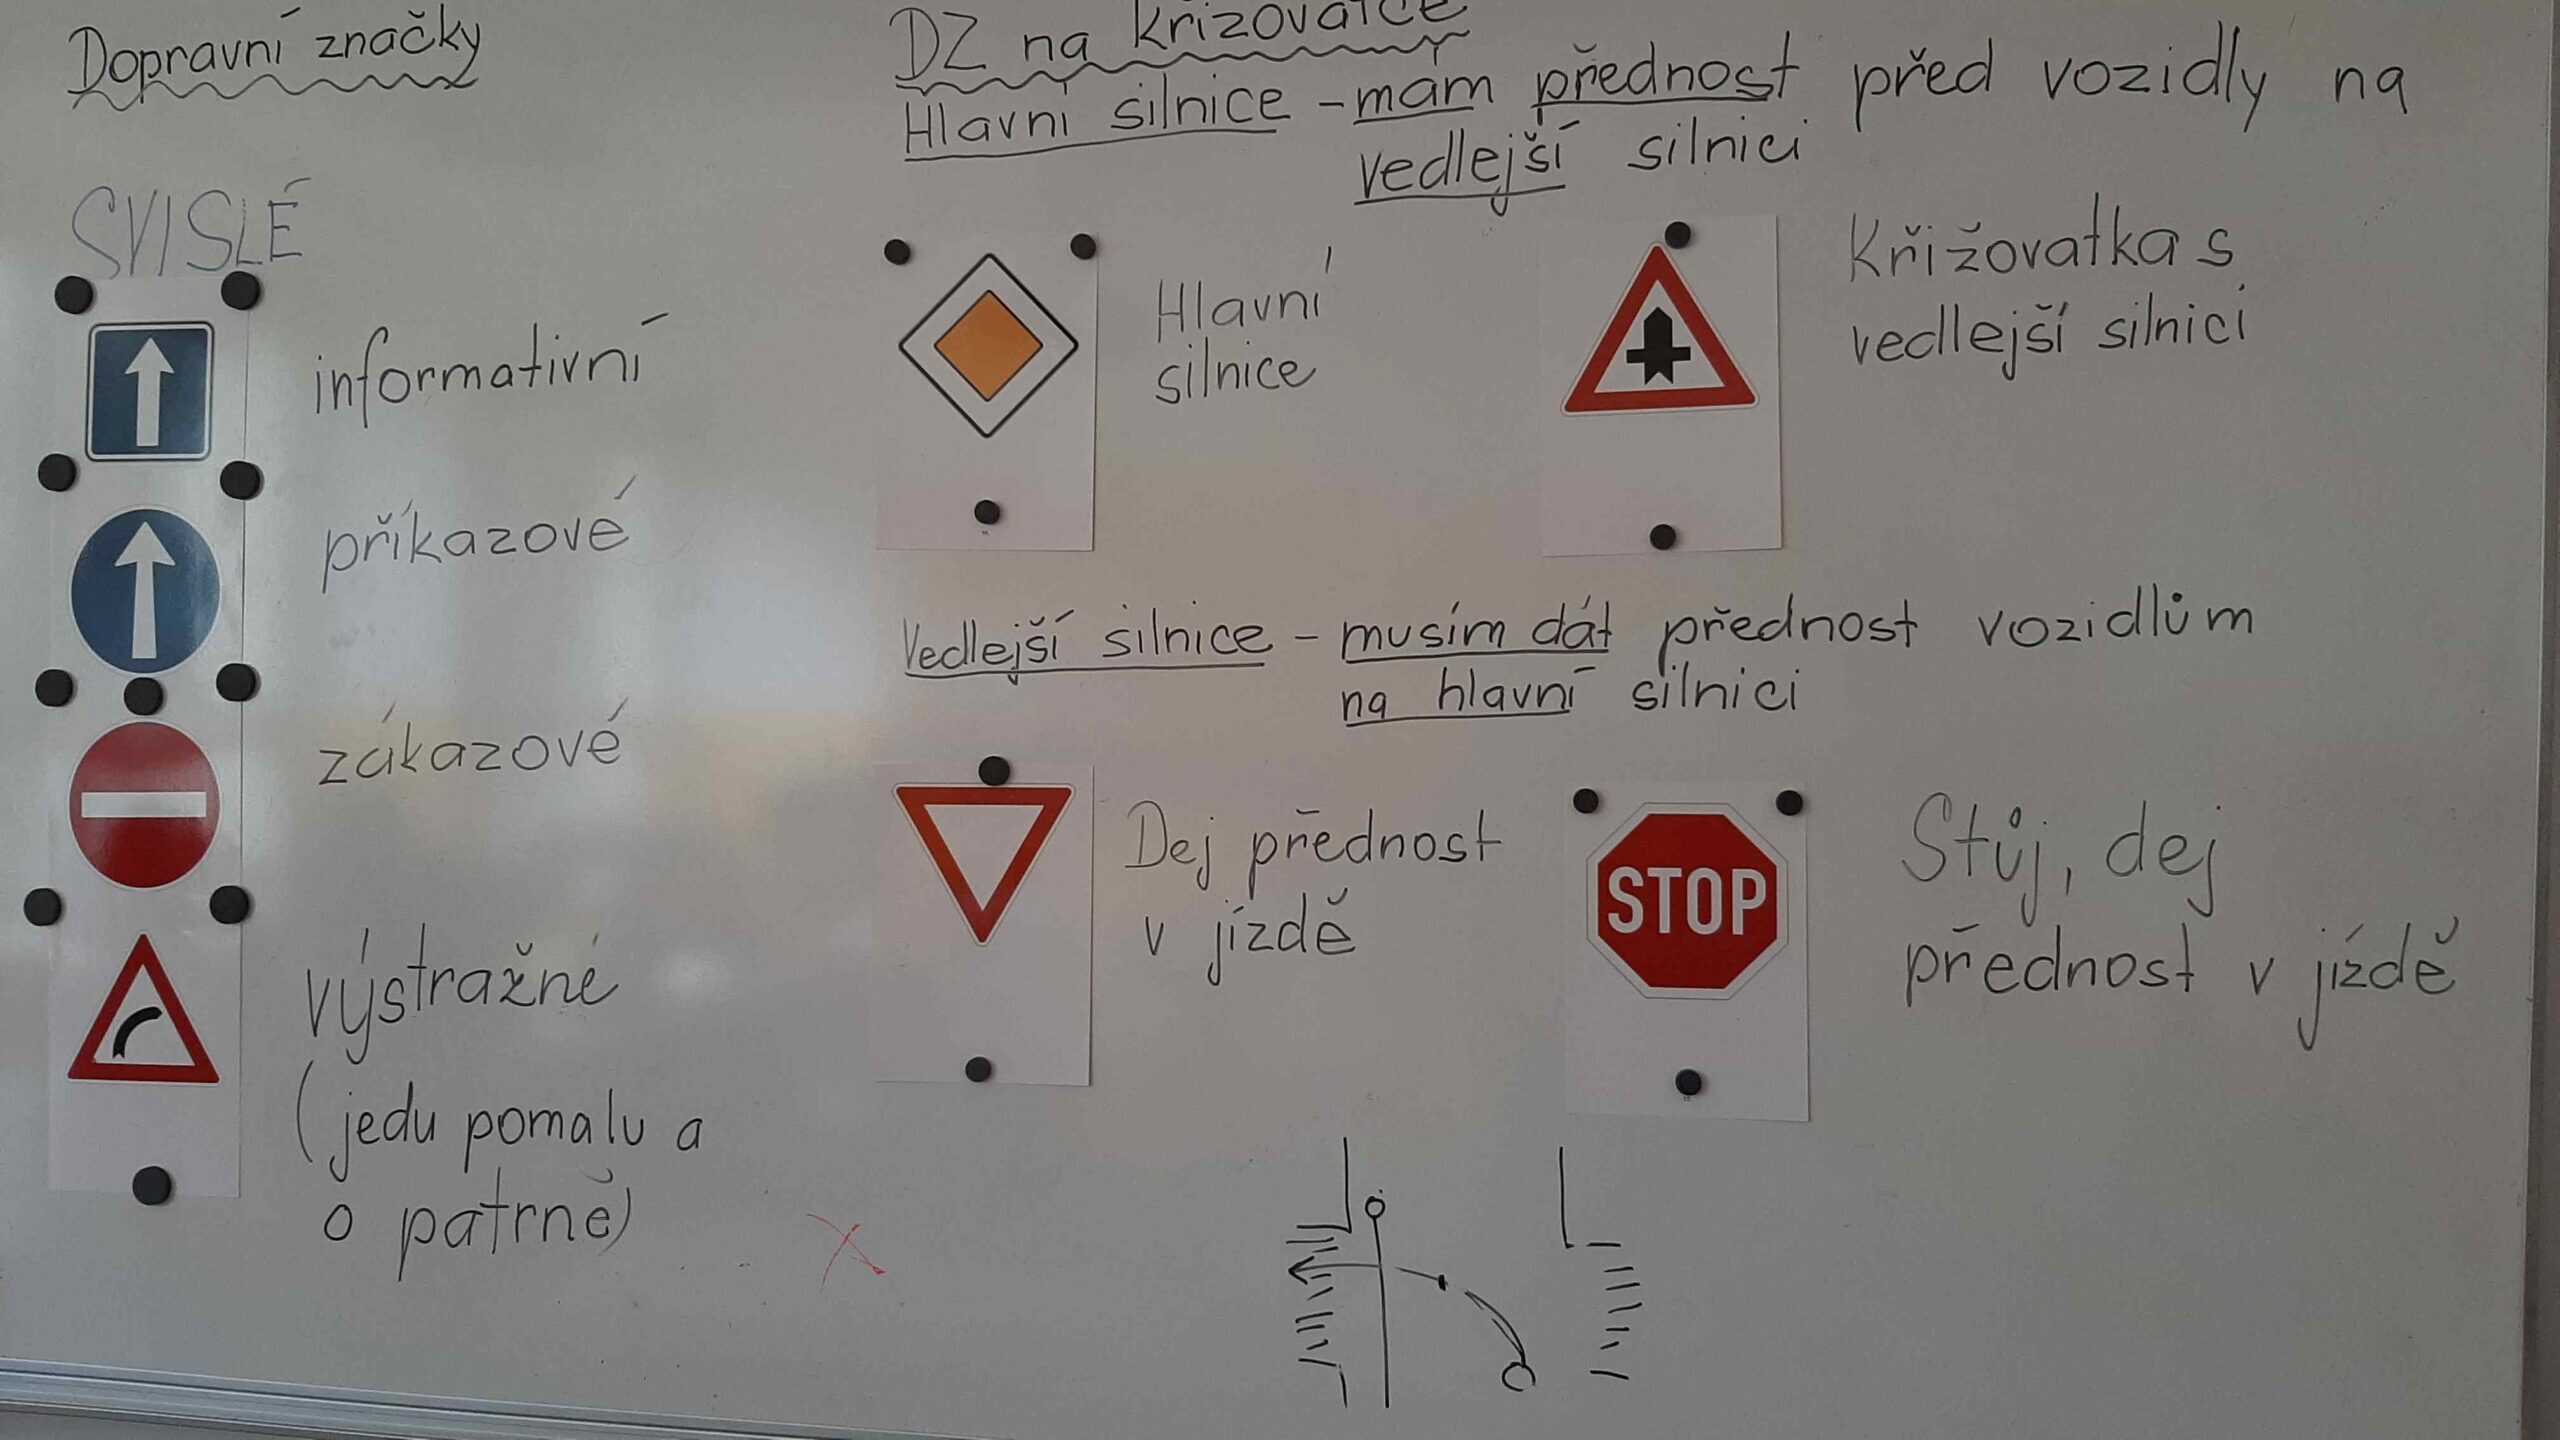 Dopravní značky
SVISLÉ
informativní
příkazové
zákazové
výstražné
(jedu pomalu a
opatrně)
DZ na křižovatce
Hlavní silnice - mám přednost před vozidly na
vedlejší silnici
Hlavní
silnice
Křižovatka s
vedlejší silnicí
Vedlejší silnice - musím dát přednost vozidlům
na hlavní silnici
Dej přednost
v jízdě
STOP
Stůj, dej
přednost v jízdě